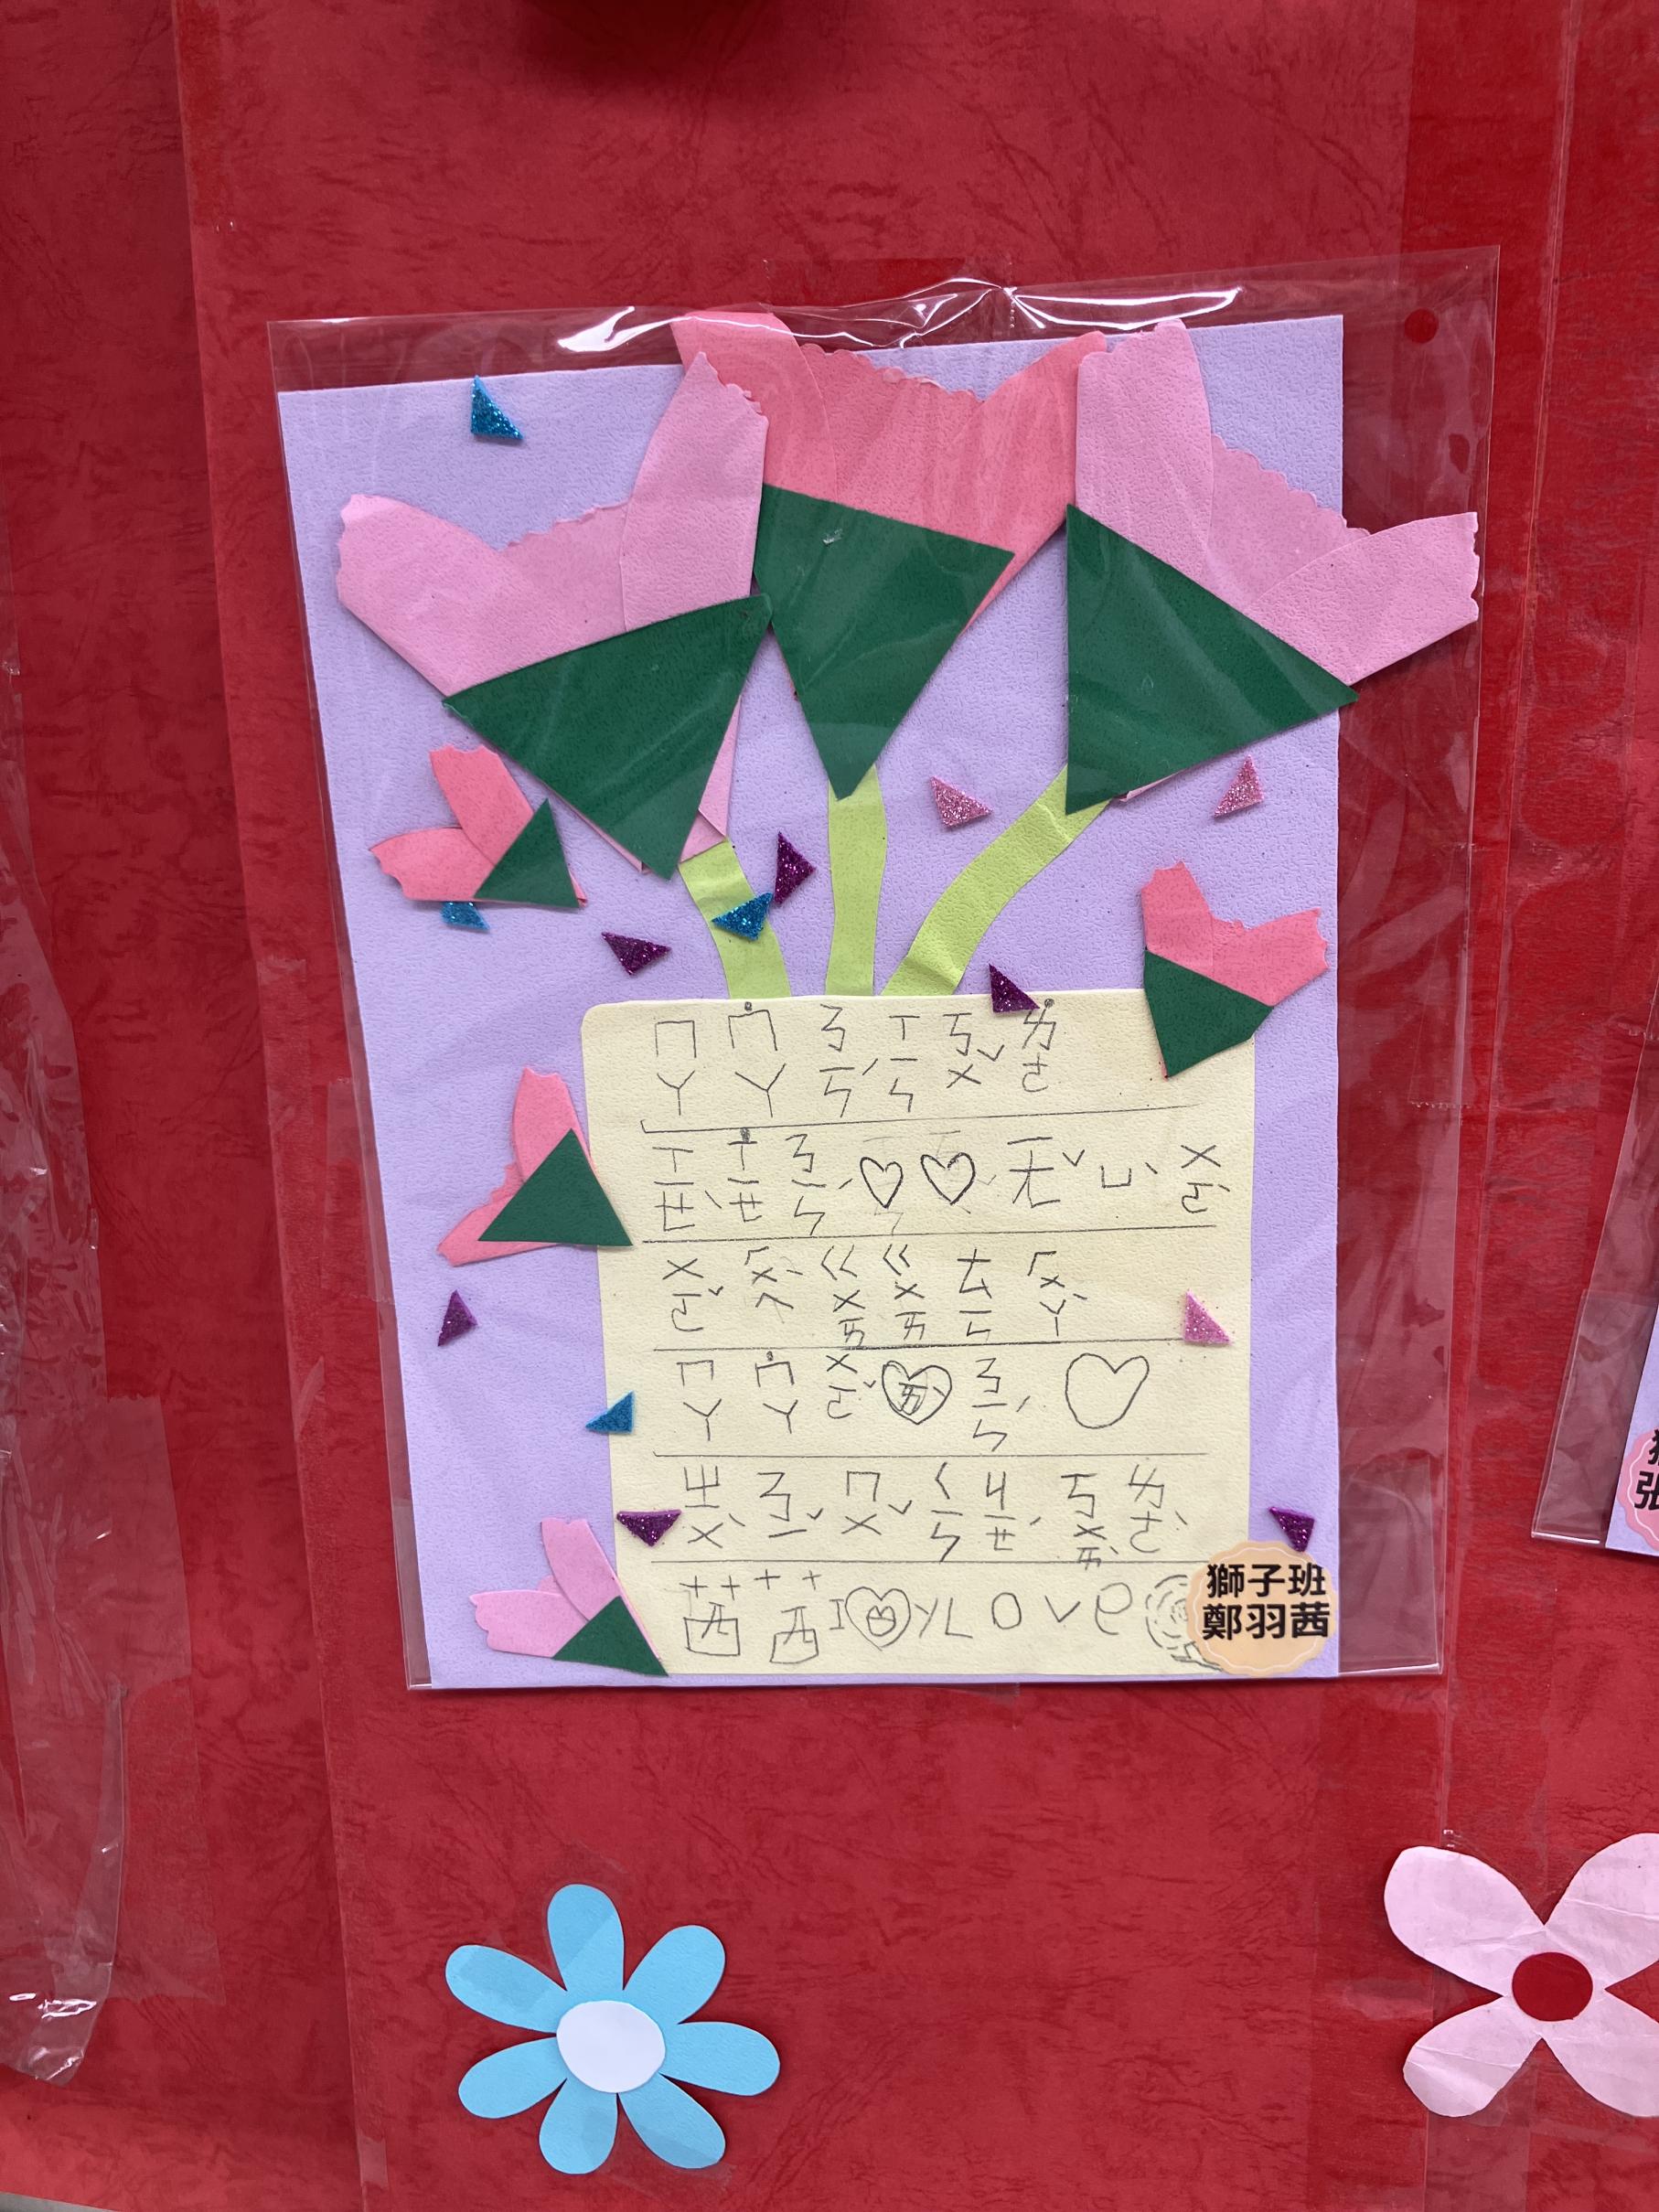 ㄇㄚ ˙ㄇㄚ ㄋㄧㄣˊ ㄒㄧㄣ ㄎㄨˇ ˙ㄌㄜ
ㄒㄧㄝˋ ˙ㄒㄧㄝ ㄋㄧㄣˊ ♡ ♡ ㄧㄤˇ ㄩˋ ㄨㄛˇ
ㄨㄛˇ ㄏㄨㄟˋ ㄍㄨㄞ ㄍㄨㄞ ㄊㄧㄣ ㄏㄨㄚˋ
ㄇㄚ ˙ㄇㄚ ㄨㄛˇ ㄞˋ ㄋㄧㄣˊ ♡
ㄓㄨˋ ㄋㄧˇ ㄇㄨˇ ㄑㄧㄣ ㄐㄧㄝˊ ㄎㄨㄞˋ ㄌㄜˋ
茜茜 I ♡ y Love
獅子班
鄭羽茜
張